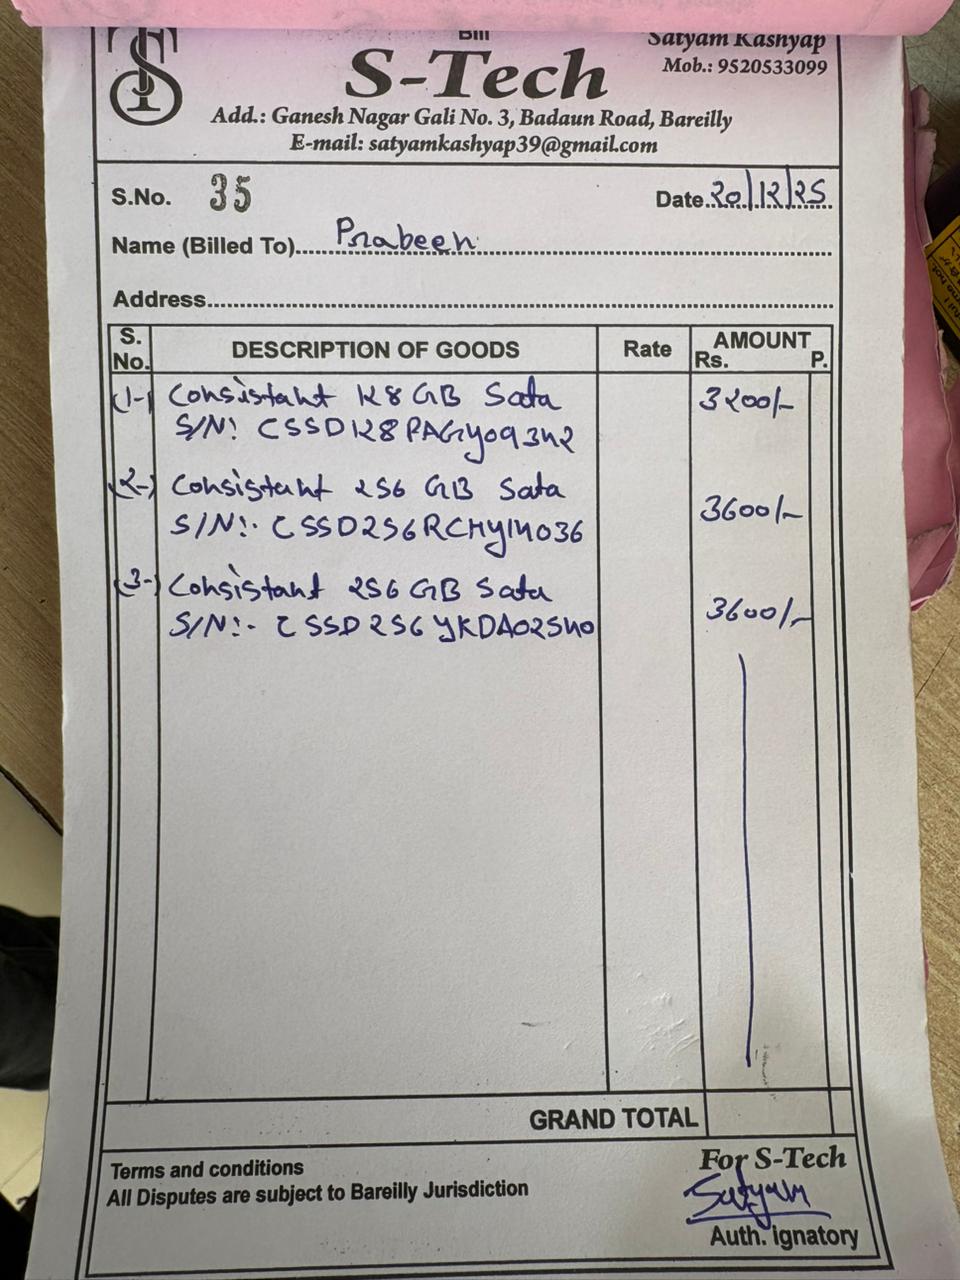 Bill
Satyam Kashyap
S-Tech
Mob.: 9520533099
Add.: Ganesh Nagar Gali No. 3, Badaun Road, Bareilly
E-mail: satyamkashyap39@gmail.com
S.No. 35
Date.20/12/25
Name (Billed To)....Prabeen
Address
S. No. DESCRIPTION OF GOODS Rate AMOUNT Rs. P.
(1-) Consistant 128 GB Sata 3200/-
S/N: CSSD128PAGY09342
(2-) Consistant 256 GB Sata
S/N:- CSSD256RCHY14036 3600/-
(3-) Consistant 256 GB Sata
S/N:- CSSD256YKDA02540 3600/-
GRAND TOTAL
Terms and conditions
All Disputes are subject to Bareilly Jurisdiction
For S-Tech
Satyam
Auth. ignatory